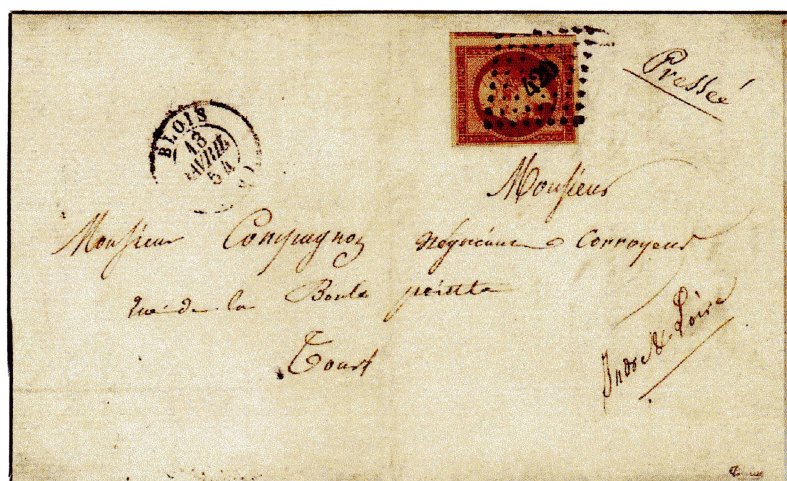 Pressée
BLOIS
13
AVRIL
54
420
Monsieur
Monsieur Compagnon négociant Corroyeur
rue de la Boule peinte
Tours
Indre & Loire